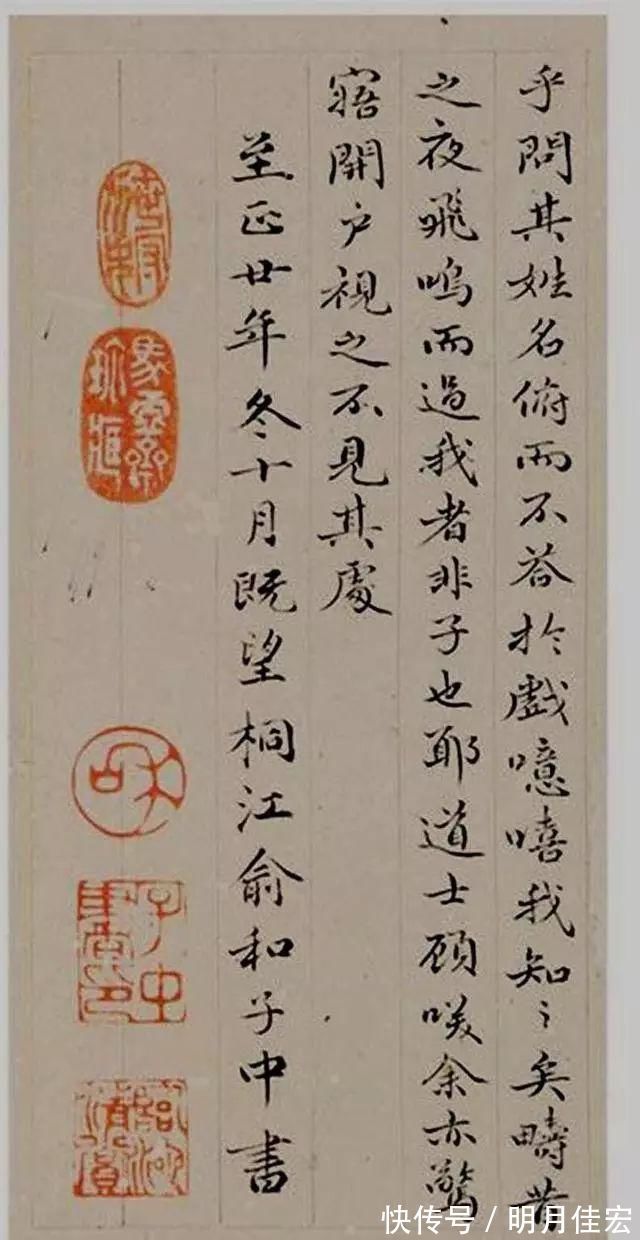 乎問其姓名俯而不荅扵戲噫嘻我知〻矣疇昔
之夜飛鳴而過我者非子也耶道士顧咲余亦驚
寤開户視之不見其處
至正廿年冬十月既望桐江俞和子中書
和
快传号/明月佳宏